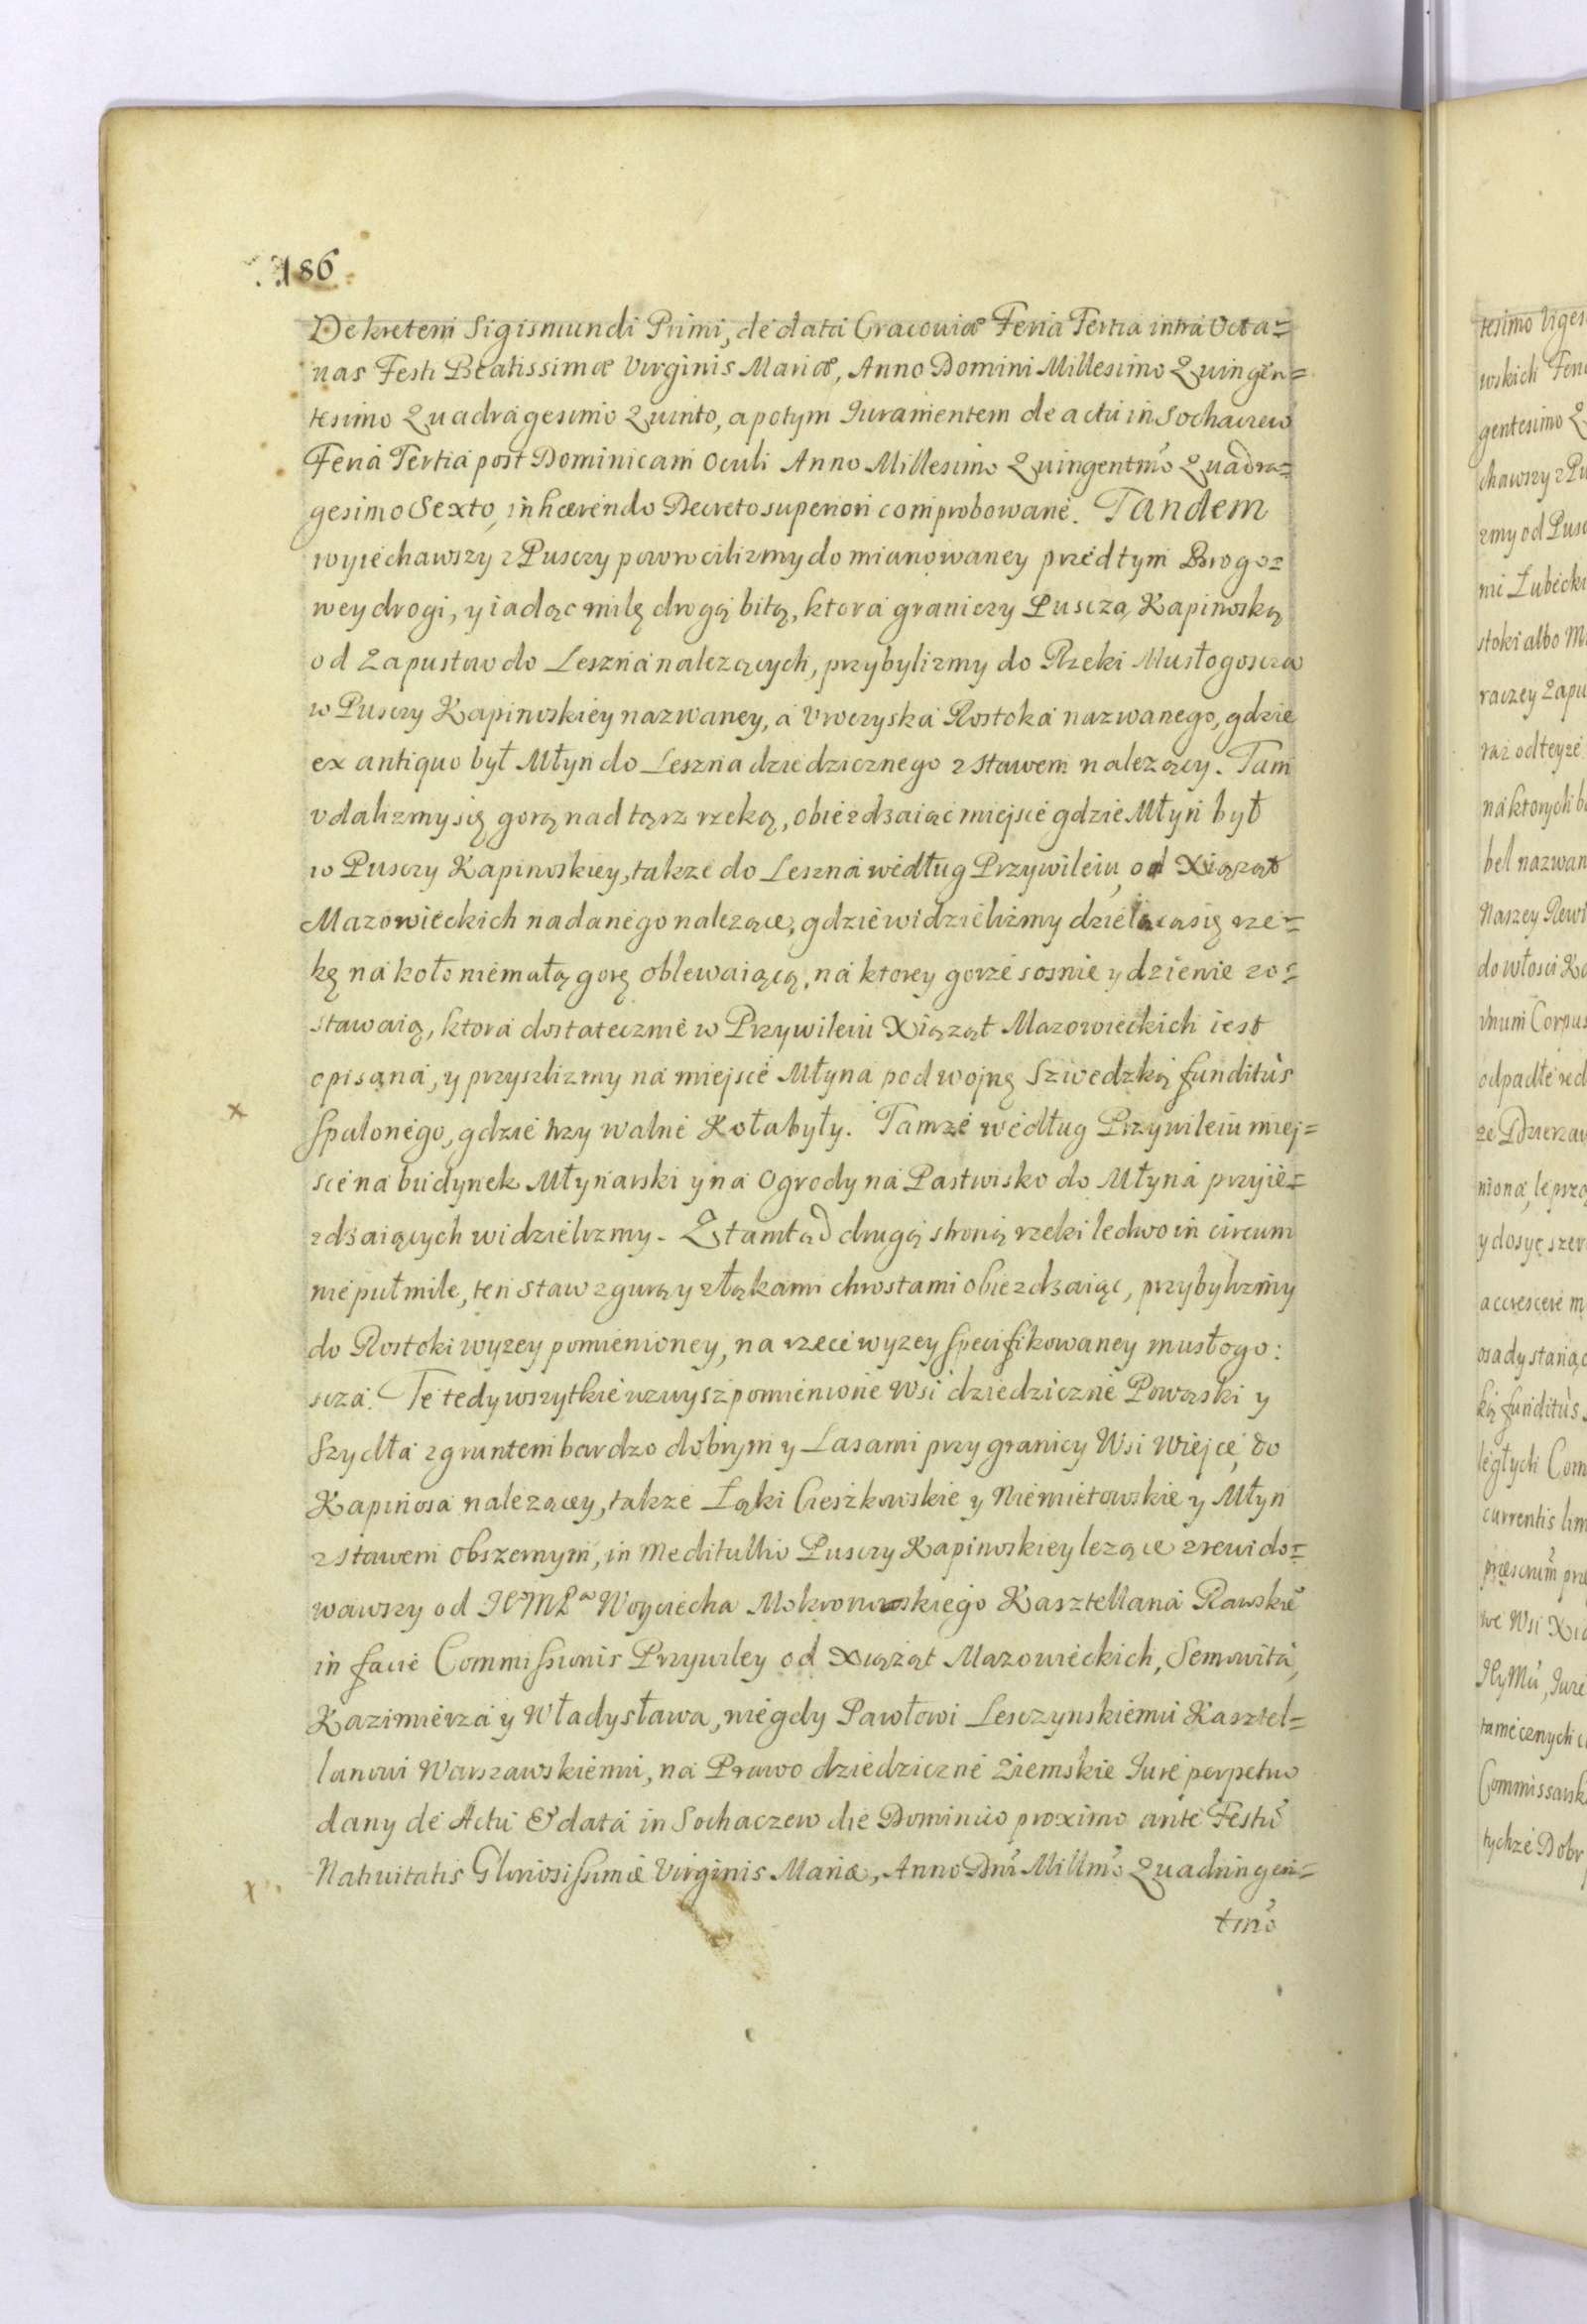 186
Dekretem Sigismundi Primi, de data Cracouiæ Feria Tertia intra Octa=
uas Festi Beatissimæ Virginis Mariæ, Anno Domini Millesimo Quingen=
tesimo Quadragesimo Quinto, a potym Iuramentem de actu in Sochaczew
Feria Tertia post Dominicam Oculi Anno Millesimo Quingentmo Quadra=
gesimo Sexto, inhærendo Decreto superiori comprobowane. Tandem
wyiechawszy z Pusczy powrocilizmy do mianowaney przed tym Brogo=
wey drogi, y iadąc milę drogą bitą, ktora graniczy Pusczą Kapinoską
od Zapustow do Leszna nalezących, przybylizmy do Rzeki Musłogoscza
w Pusczy Kapinoskiey nazwaney, a Vroczyska Rostoka nazwanego, gdzie
ex antiquo był Młyn do Leszna dziedzicznego z stawem nalezący. Tam
vdalizmy się gorą nad tąsz rzeką, obiezdzaiąc miejsce gdzie Młyn był
w Pusczy Kapinoskiey, takze do Leszna według Przywileiu, od Xiąząt
Mazowieckich nadanego nalezące, gdzie widzielizmy dzielącą się rze=
kę na koło niemałą gorę oblewaiącą, na ktorey gorze sosnie y dzienie zo=
stawaią, ktora dostatecznie w Przywileiu Xiąząt Mazowieckich iest
opisana, y przyszlizmy na miejsce Młyna pod wojnę Szwedzką funditùs
spalonego, gdzie trzy walne Koła były. Tamze według Przywileiu miej=
sce na budynek Młynarski y na Ogrody na Pastwisko do Młyna przyie=
zdzaiących widzielizmy. Ztamtąd drugą stroną rzeki ledwo in circum
nie puł mile, ten Staw z gurą y z łąkami chrostami obiezdzaiąc, przybylizmy
do Rostoki wyzey pomienioney, na rzece wyzey specifikowaney musłogo:
scza. Te tedy wszytkie wzwysz pomienione Wsi dziedziczne Powązki y
Szydła z gruntem bardzo dobrym y Lasami przy granicy Wsi Wiejce, do
Kapinosa nalezącey, takze Łąki Cieszkowskie y Niemietowskie y Młyn
z stawem obszernym, in meditullio Pusczy Kapinoskiey lezące zrewido=
wawszy od JEMPa Woyciecha Mokronowskiego Kasztellana Rawskie
in facie Commissionis Przywiley od Xiąząt Mazowieckich, Semowita,
Kazimierza y Władysława, niegdy Pawłowi Lesczynskiemu Kasztel=
lanowi Warszawskiemu, na Prawo dziedziczne Ziemskie Iure perpetuo
dany de Actu & data in Sochaczew die Dominico proximo ante Festu
Natiuitatis Gloriosissimæ Virginis Mariæ, Anno Dni Millmo Quadringen=
tmo